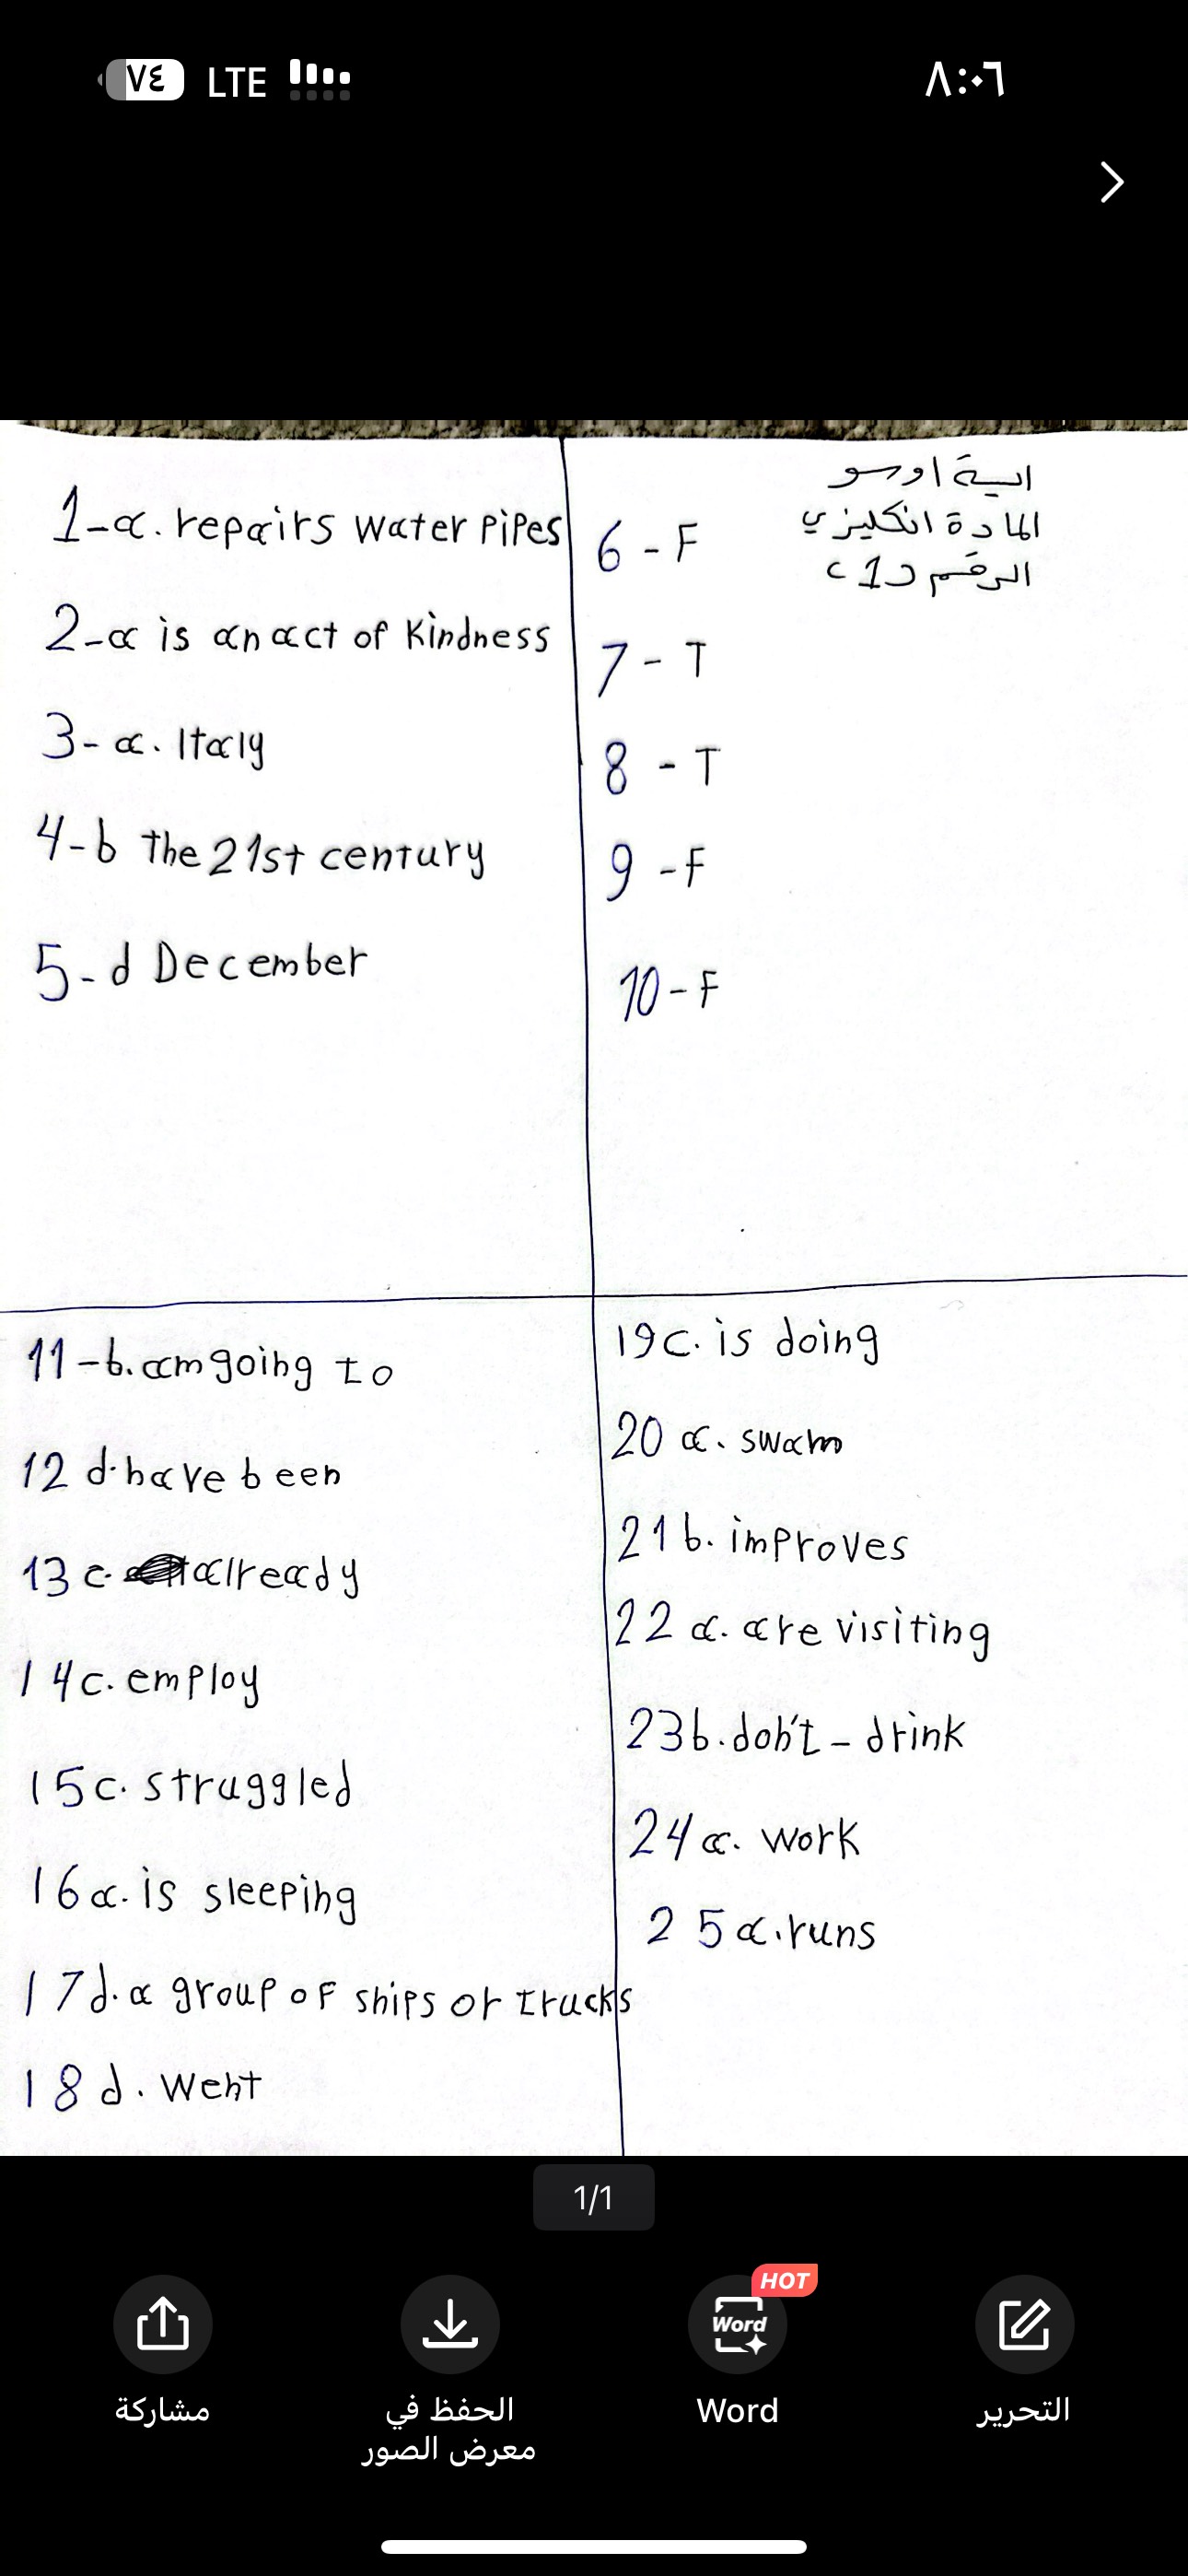 ٧٤ LTE
٨:٠٦
المادة انكليزي
1-a. repairs water pipes
2-a is an act of kindness
3- a. Italy
4-b the 21st century
5-d December
6 - F
7 - T
8 - T
9 - F
10 - F
11-b. am going to
12 d. have been
13 c. already
14 c. employ
15 c. struggled
16 a. is sleeping
17 d. a group of ships or trucks
18 d. went
19 c. is doing
20 a. swam
21 b. improves
22 a. are visiting
23 b. don't - drink
24 a. work
25 a. runs
1/1
HOT
Word
مشاركة
الحفظ في
معرض الصور
Word
التحرير